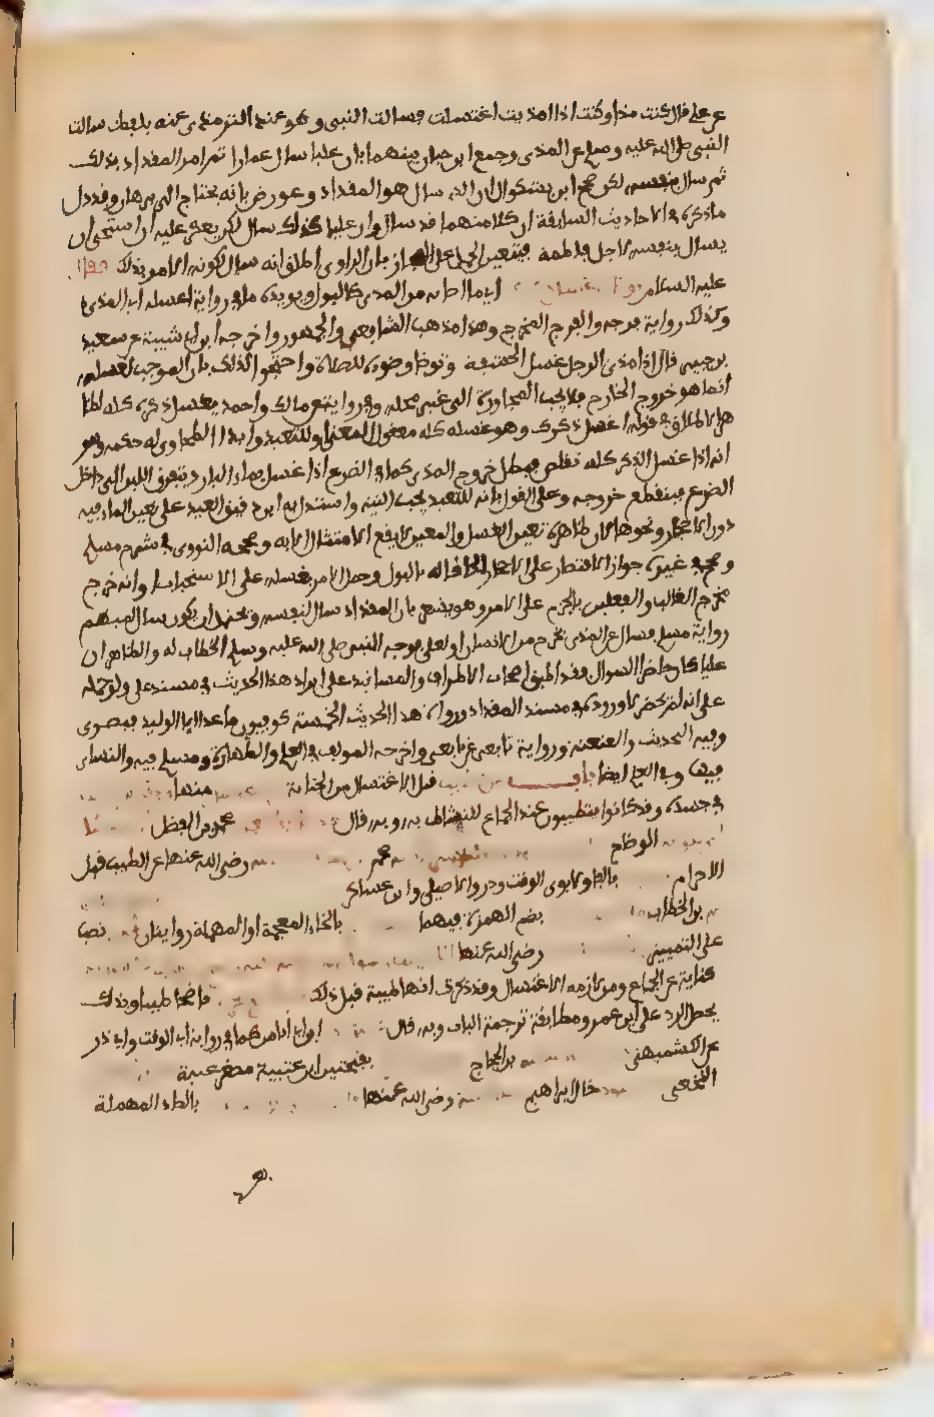 عن علي قال كنت مذاء وكنت اذا امذيت اغتسلت فسالت النبي وهو عند الترمذي عنه بلفظ سالت
النبي صلى الله عليه وسلم عن المذي وجمع ابن حبان بينهما بان عليا سال عمارا ثم امر المقداد بذلك
ثم سال بنفسه لكن صحح ابن بشكوال ان الذي سال هو المقداد وعورض بانه يحتاج الى برهان وقد دل
ما ذكر في الاحاديث السابقة ان كلا منهما قد سال وان عليا كذلك سال لكن يعكر عليه انه استحى ان
يسال بنفسه لاجل فاطمة فيتعين الحمل على المجاز بان الراوي اطلق انه سال لكونه الامر بذلك فقال
عليه السلام توضا اي ما اصابه من المذي كالبول ويويده ما في رواية اغسله اي المذي
وكذلك رواية فرجه والفرج المخرج وهذا مذهب الشافعي والجمهور واخرج ابن ابي شيبة عن سعيد
بن جبير قال اذا امذى الرجل غسل الحشفة وتوضا وضوءه للصلاة واحتجوا لذلك بان الموجب لغسله
انما هو خروج الخارج فلا يجب المجاوزة الى غير محله وفي رواية عن مالك واحمد يغسل ذكره كله لظا
هر الاطلاق في قوله اغسل ذكرك وهو غسله كله معقول المعنى او للتعبد وابدا الطحاوي له حكمة وهو
انه اذا غسل الذكر كله تقلص فبطل خروج المذي كما في الضرع اذا غسل بماء البارد يتفرق اللبن الى داخل
الضرع فينقطع خروجه وعلى القول بانه للتعبد يجب النية واستدل به ابن دقيق العيد على تعين الماء فيه
دون الاحجار ونحوها لان ظاهره تعين الغسل والمعين لا يقع الامتثال الا به وصححه النووي في شرح مسلم
وصحح في غيره جواز الاقتصار على الاحجار الحاقا له بالبول وحمل الامر بغسله على الاستحباب او انه خرج
مخرج الغالب والفعلين بالجزم على الامر وهو يشعر بان المقداد سال لنفسه ويحتمل ان يكون سال لمبهم
رواية مسلم فسال عن المذي يخرج من الانسان او لعلي فوجه النبي صلى الله عليه وسلم الخطاب له والظاهر ان
عليا كان حاضر السوال فقد اطبق اصحاب الاطراف والمسانيد على ايراد هذا الحديث في مسند علي ولو حمله
على انه لم يحضر لاوردوه في مسند المقداد ورواة هذا الحديث الخمسة كوفيون ما عدا ابا الوليد فبصري
وفيه التحديث والعنعنة ورواية تابعي عن تابعي واخرجه المولف في العلم والطهارة ومسلم فيه والنساي
فيها وفي العلم ايضا باب من قبل الاغتسال من الجنابة منها
في جسده وقد كانوا يتطيبون عند الجماع للنشاط به وبه قال محمد بن الفضل
الوضاح عمر رضي الله عنها عن الطيب قبل
الاحرام بالطاء ولابوي الوقت وذر والاصيلي وابن عساكر
بن الخطاب بضم الهمزة فيهما بالخاء المعجمة او المهملة روايتان نصب
على التمييز رضي الله عنها انا
كناية عن الجماع ومن لازمه الاغتسال وقد ذكرت انها طيبته قبل ذلك ناضحا طيبا وبذلك
يحصل الرد على ابن عمر ومطابقة ترجمة الباب وبه قال ابن ابي اياس كما في رواية ابي الوقت وابي ذر
عن الكشميهني بن الحجاج بفتحتين ابن عتيبة مصغر عتبة
النخعي خال ابراهيم رضي الله عنها بالصاد المهملة